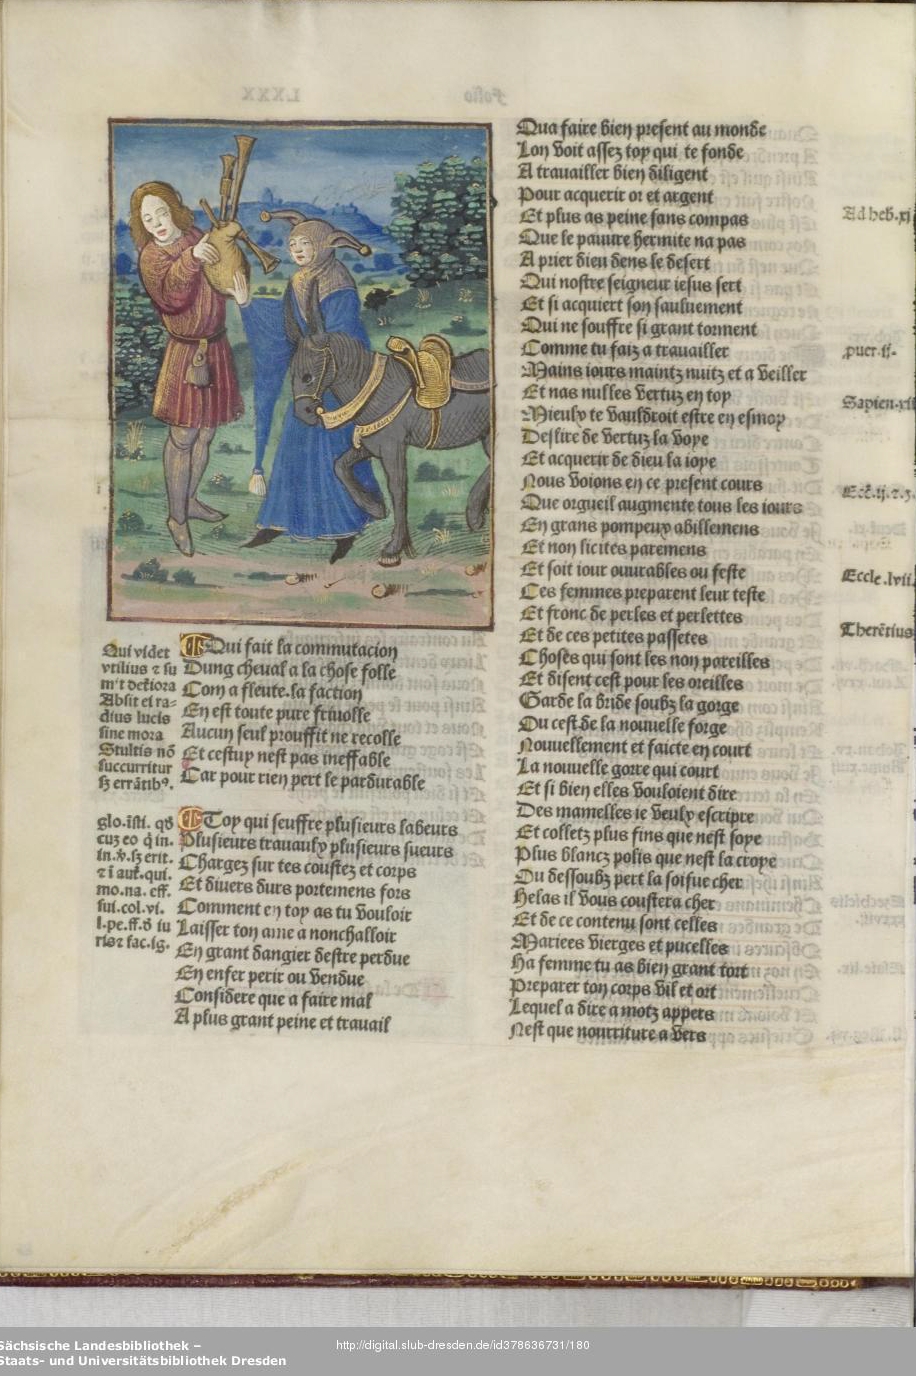 Qui fait la commutacion
Dung cheual a la chose folle
Com a fleute.la faction
En est toute pure friuolle
Aucun seul prouffit ne recolle
Et cestuy nest pas ineffable
Car pour rien pert le pardurable
Qui videt
vtilius ⁊ su
mit deteriora
Absit ei ra-
dius lucis
sine mora
Stultis nō
succurritur
sꝫ errātibꝰ.
Toy qui seuffre plusieurs labeurs
Plusieurs trauaulx plusieurs sueurs
Chargez sur tes coustez et corps
Et diuers durs portemens fors
Comment en toy as tu vouloir
Laisser ton ame a nonchalloir
En grant dangier destre perdue
En enfer perir ou vendue
Considere que a faire mal
A plus grant peine et trauail
glo.isti. qđ
cuꝫ eo q̄ in.
in.v.sꝫ erit.
⁊ ī aut.qui.
mo.na. eff.
sui.col.vi.
l.pe.ff.đ iu
ris⁊ fac.ig.
Qua faire bien present au monde
Lon voit assez toy qui te fonde
A trauailler bien diligent
Pour acquerir or et argent
Et plus as peine sans compas
Que le pauure hermite na pas
A prier dieu dens le desert
Qui nostre seigneur iesus sert
Et si acquiert son sauluement
Qui ne souffre si grant torment
Comme tu faiz a trauailler
Mains iours maintz nuitz et a veiller
Et nas nulles vertuz en toy
Mieulx te vauldroit estre en esmoy
Desire de vertuz la voye
Et acquerir de dieu la ioye
Nous voions en ce present cours
Que orgueil augmente tous les iours
En grans pompeux abillemens
Et non licites paremens
Et soit iour ouurables ou feste
Ces femmes preparent leur teste
Et fronc de perles et perlettes
Et de ces petites passetes
Choses qui sont les non pareilles
Et disent cest pour les oreilles
Garde la bride soubz la gorge
Ou cest de la nouuelle forge
Nouuellement et faicte en court
La nouuelle gorre qui court
Et si bien elles vouloient dire
Des mamelles ie veulx escripre
Et colletz plus fins que nest soye
Plus blancz polis que nest la croye
Ou dessoubz pert la soifue cher
Helas il vous coustera cher
Et de ce contenu sont celles
Mariees vierges et pucelles
Ha femme tu as bien grant tort
Preparer ton corps vil et ort
Lequel a dire a motz appers
Nest que nourriture a vers
Ad heb.xj
puer.ij.
Sapien.xii
Eccle.lvii.
Therētius
Sächsische Landesbibliothek –
Staats- und Universitätsbibliothek Dresden
http://digital.slub-dresden.de/id378636731/180